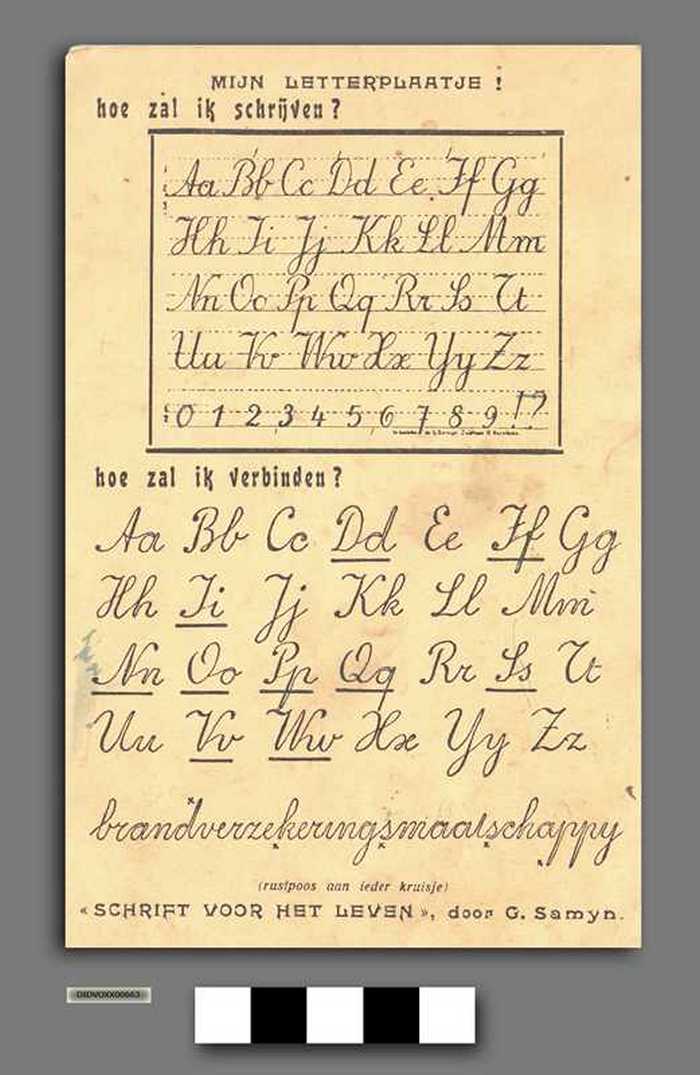 MIJN LETTERPLAATJE !
hoe zal ik schrijven ?
Aa Bb Cc Dd Ee Ff Gg
Hh Ii Jj Kk Ll Mm
Nn Oo Pp Qq Rr Ss Tt
Uu Vv Ww Xx Yy Zz
0 1 2 3 4 5 6 7 8 9 !?
hoe zal ik verbinden ?
Aa Bb Cc Dd Ee Ff Gg
Hh Ii Jj Kk Ll Mm
Nn Oo Pp Qq Rr Ss Tt
Uu Vv Ww Xx Yy Zz
brandverzekeringsmaatschappy
(rustpoos aan ieder kruisje)
« SCHRIFT VOOR HET LEVEN », door G. Samyn.
DIDVOXX00663